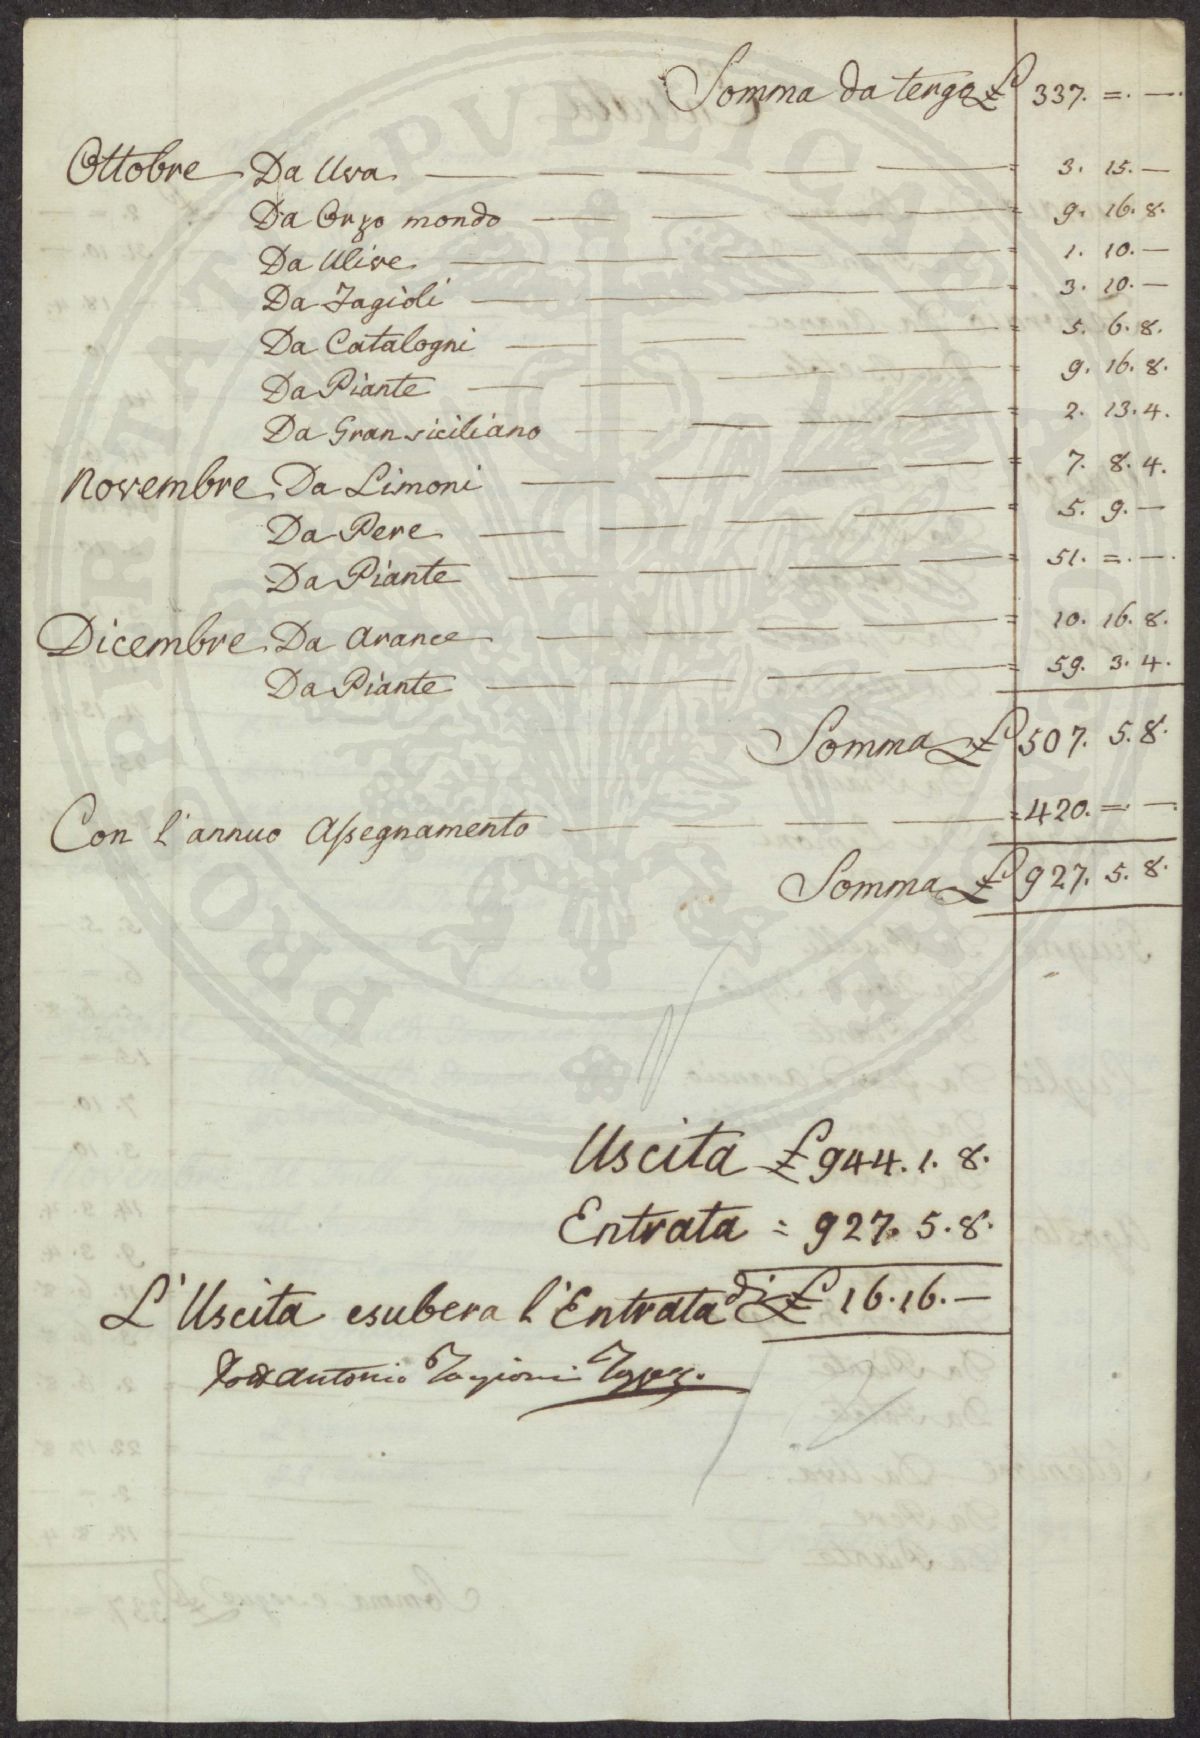 Somma da tergo £ 337. =. —.
Ottobre Da Uva — — — — = 3. 15. —
Da Orzo mondo — — — — = 9. 16. 8.
Da Ulive — — — — = 1. 10. —
Da Fagioli — — — — = 3. 10. —
Da Catalogni — — — — = 5. 6. 8.
Da Piante — — — — = 9. 16. 8.
Da Gran siciliano — — — = 2. 13. 4.
Novembre Da Limoni — — — — = 7. 8. 4.
Da Pere — — — — = 5. 9. —
Da Piante — — — — = 51. =. —.
Dicembre Da Arance — — — — = 10. 16. 8.
Da Piante — — — — = 59. 3. 4.
Somma £ 507. 5. 8.
Con l'annuo Assegnamento — — — = 420. =. —.
Somma £ 927. 5. 8.
Uscita £ 944. 1. 8.
Entrata = 927. 5. 8.
L'Uscita esubera l'Entrata di £ 16. 16. —
Antonio Targioni Tozzetti
PROPRIETAS PUBLICA